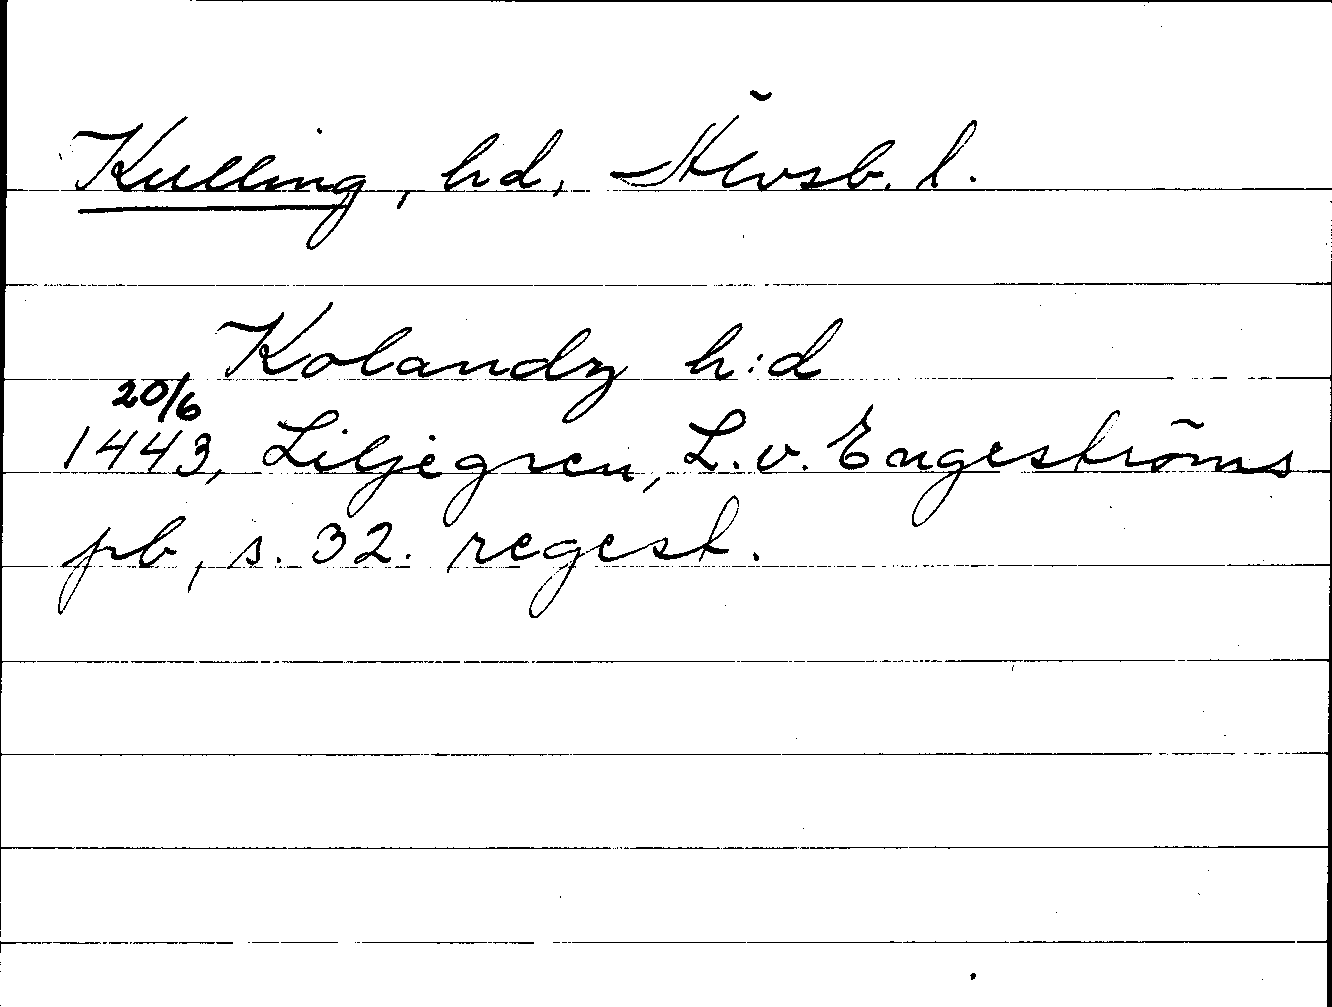 Kulling, hd, Älvsb. l.
Kolandz h:d
20/6
1443, Liljegren, L. v. Engeströms
pb, s. 32. regest.